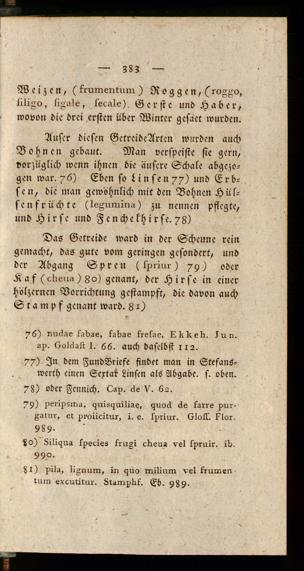 — 383 —
Weizen, (frumentum) Roggen, (roggo,
siligo, sigale, secale). Gerste und Haber,
wovon die drei ersten über Winter gesäet wurden.
Auser diesen GetreideArten wurden auch
Bohnen gebaut. Man verspeiste sie gern,
vorzüglich wenn ihnen die äusere Schale abgezo-
gen war. 76) Eben so Linsen 77) und Erb-
sen, die man gewöhnlich mit den Bohnen Hül-
senfrüchte (legumina) zu nennen pflegte,
und Hirse und Fenchelhirse. 78)
Das Getreide ward in der Scheune rein
gemacht, das gute vom geringen gesondert, und
der Abgang Spreu (spriur) 79) oder
Kaf (cheua) 80) genant, der Hirse in einer
hölzernen Vorrichtung gestampft, die davon auch
Stampf genant ward. 81)
76) nudae fabae, fabae fresae. Ekkeh. Jun.
ap. Goldast I. 66. auch daselbst 112.
77) In dem FundBriefe findet man in Stefans-
werth einen Sextar Linsen als Abgabe. s. oben.
78) oder Fennich. Cap. de V. 62.
79) peripsma, quisquiliae, quod de farre pur-
gatur, et proiicitur, i. e. spriur. Gloss. Flor.
989.
80) Siliqua species frugi cheua vel spruir. ib.
990.
81) pila, lignum, in quo milium vel frumen-
tum excutitur. Stamphf. Eb. 989.